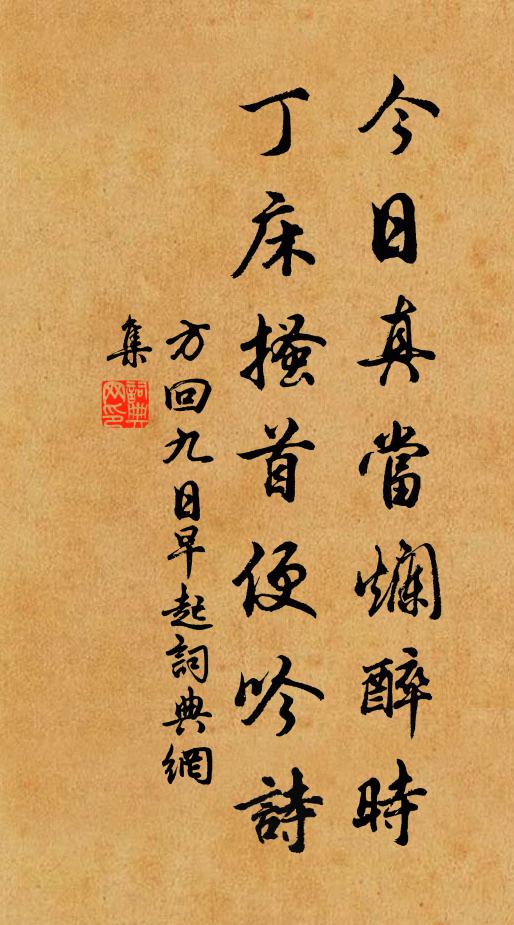 今日真當爛醉時
丁床搔首便吟詩
方回九日早起詞典網
集
詞典
网印